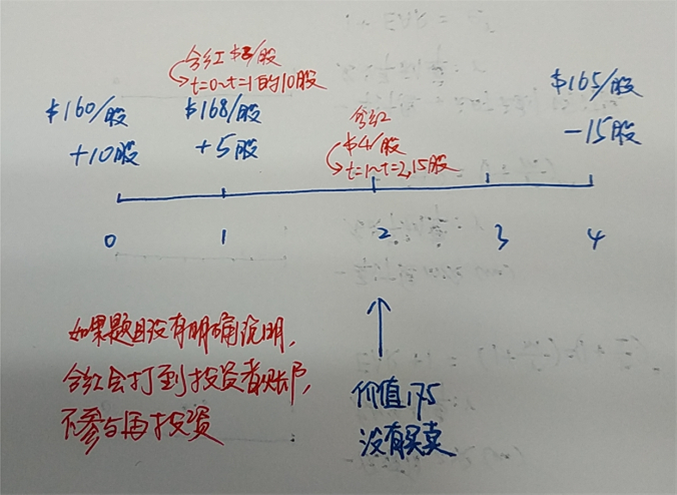 分红 $3/股
t=0~t=1的10股
$160/股
+10股
$168/股
+5股
分红
$4/股
t=1~t=2,15股
$165/股
-15股
0 1 2 3 4
如果题目没有明确说明,
分红会打到投资者账户,
不参与再投资
价值175
没有买卖